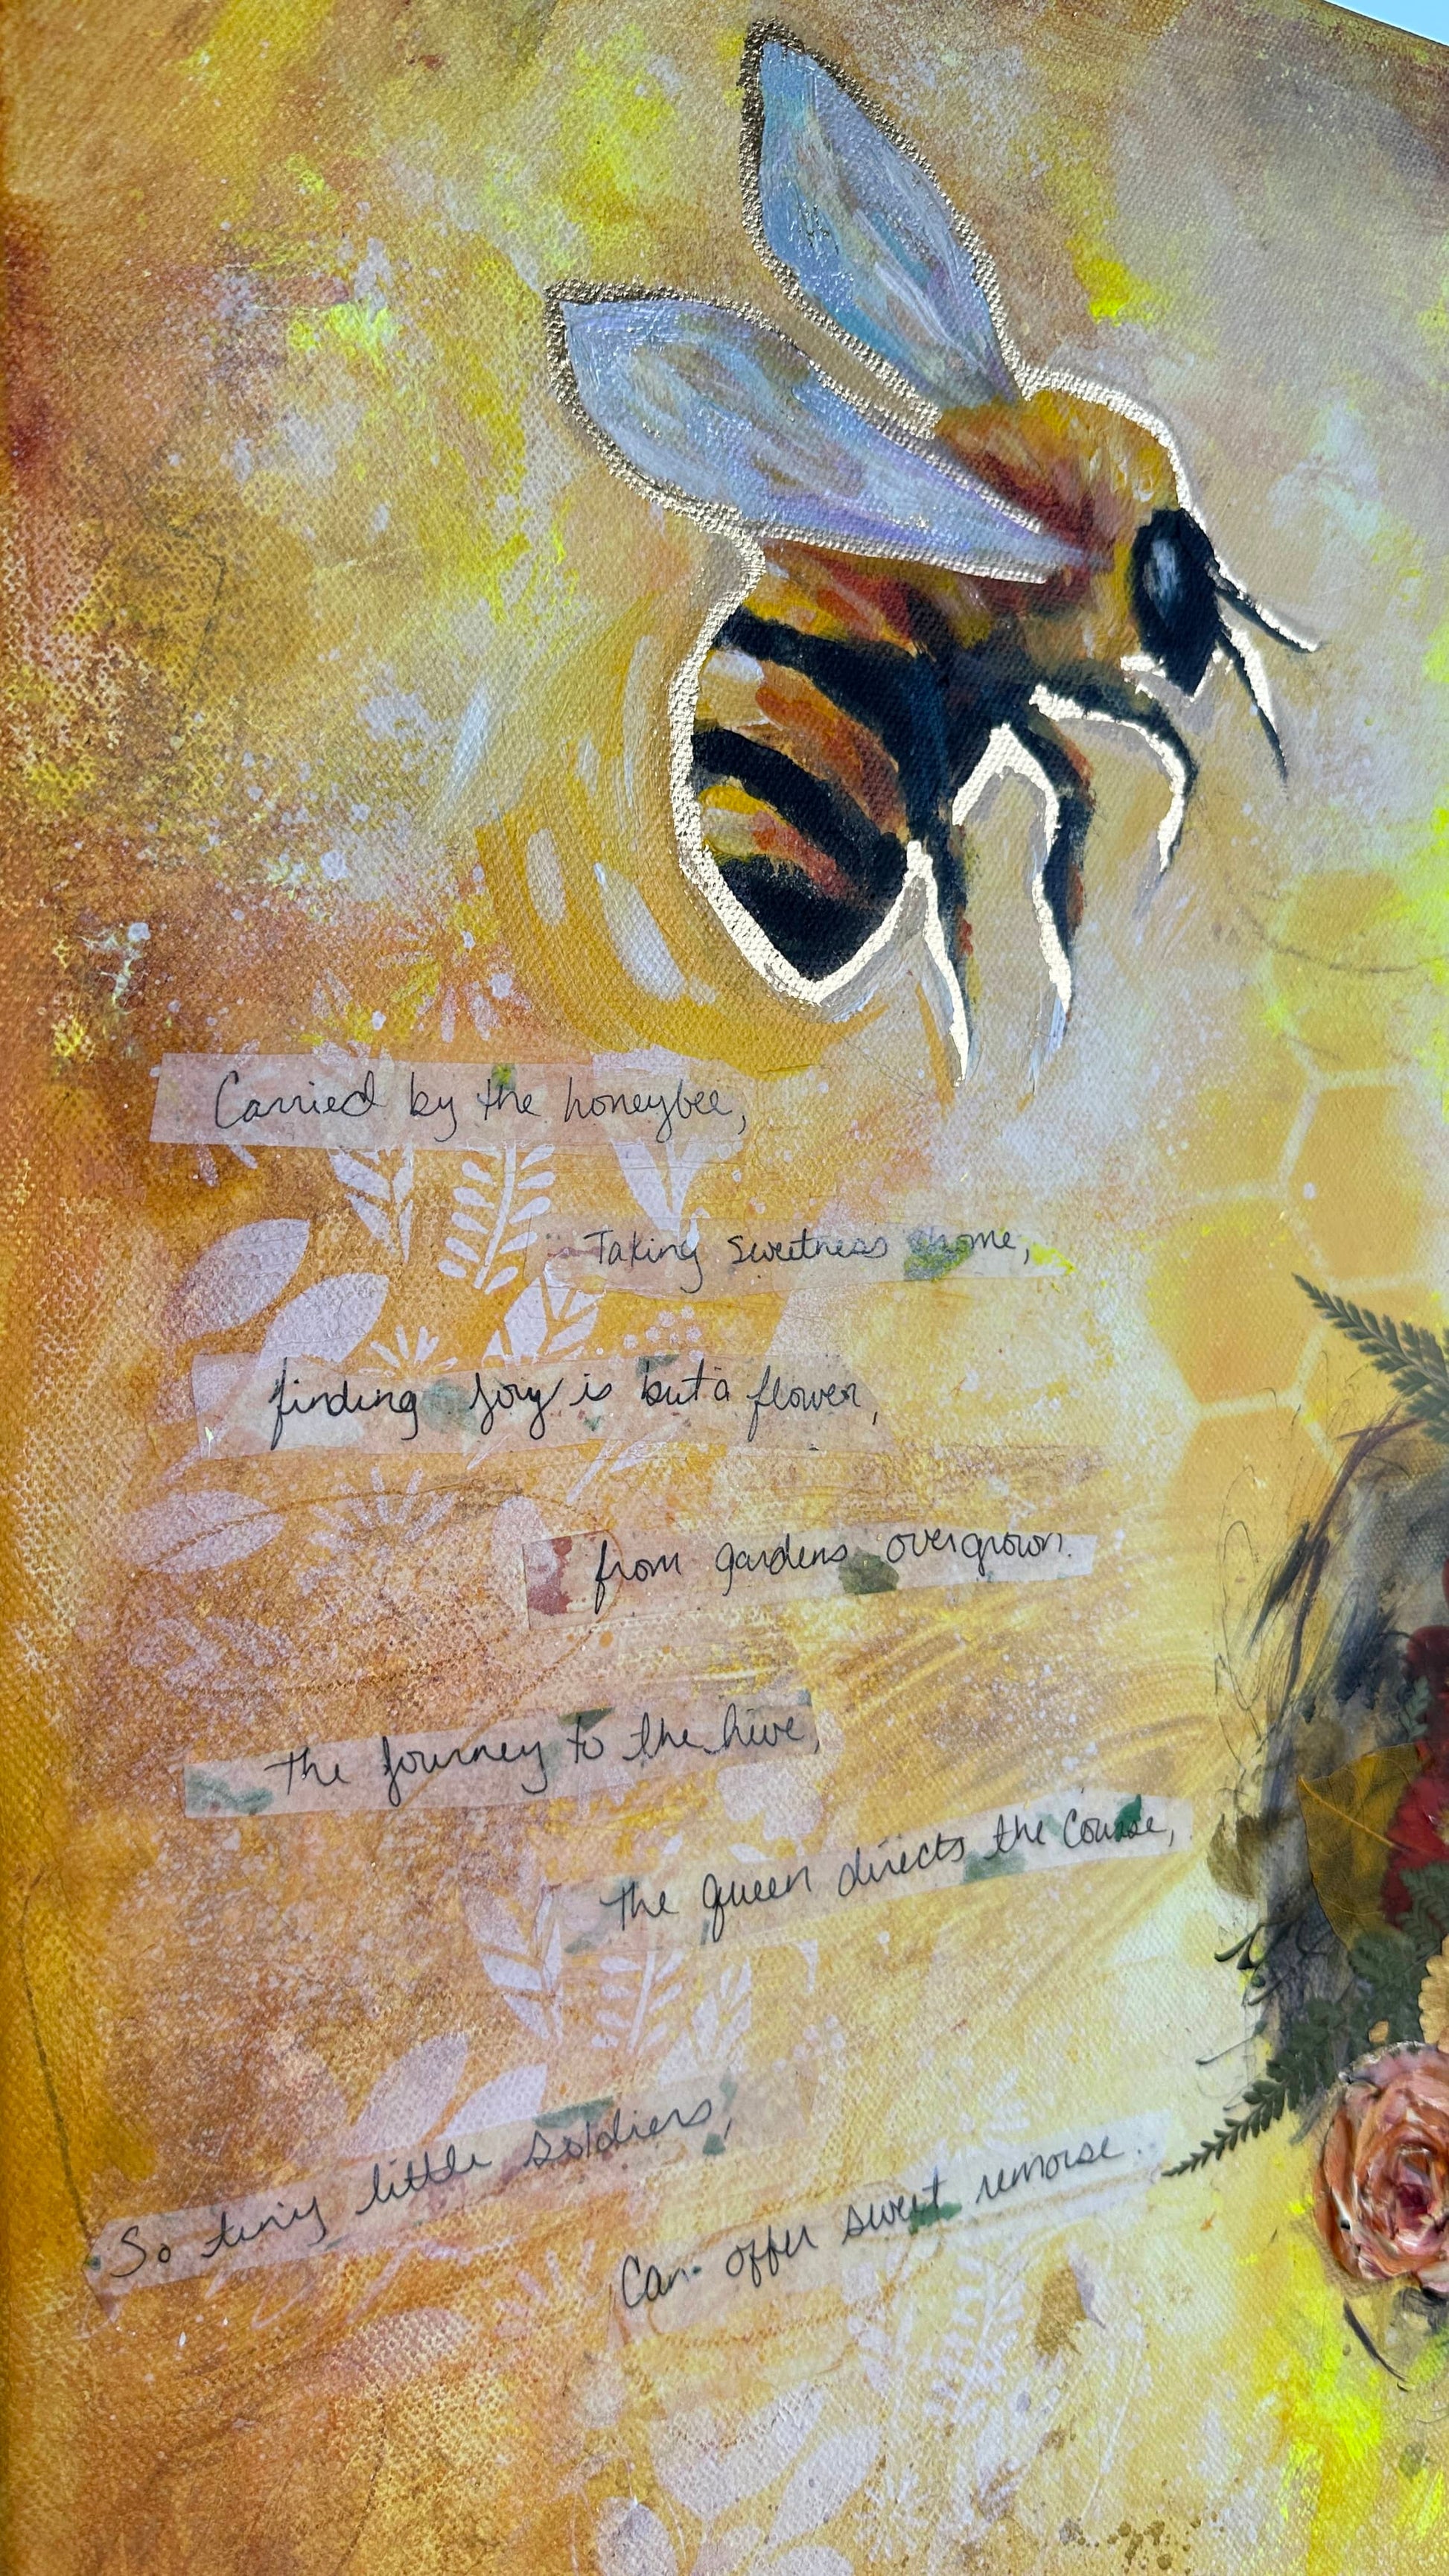 Carried by the honeybee,
Taking sweetness home,
finding joy is but a flower,
from gardens overgrown.
the journey to the hive,
the queen directs the course,
So tiny little soldiers,
Can offer sweet remorse.